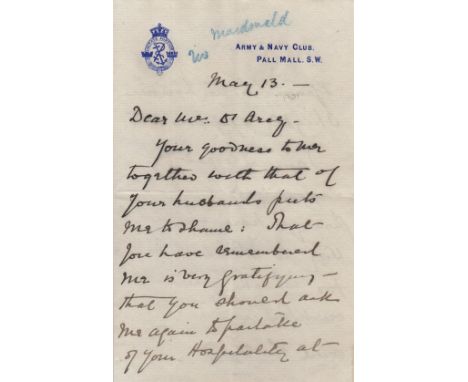 Macdonald
ARMY & NAVY CLUB.
PALL MALL. S.W.
May 13. —
Dear Mrs. D'Arcy -
Your goodness to me
together with that of
Your husbands puts
Me to shame: That
You have remembered
Me is very gratifying -
that you should ask
Me again to partake
of Your Hospitality at